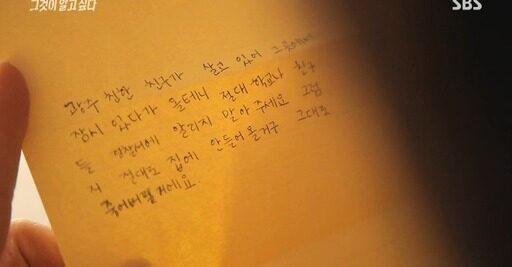 그것이 알고 싶다
SBS
광주 친한 친구가 살고 있어 그곳에
잠시 있다가 올테니 절대 학교나 친구
들 경찰서에 알리지 말아 주세요 그럼
저 절대로 집에 안들어 올거구 그대로
죽어버릴 거에요.